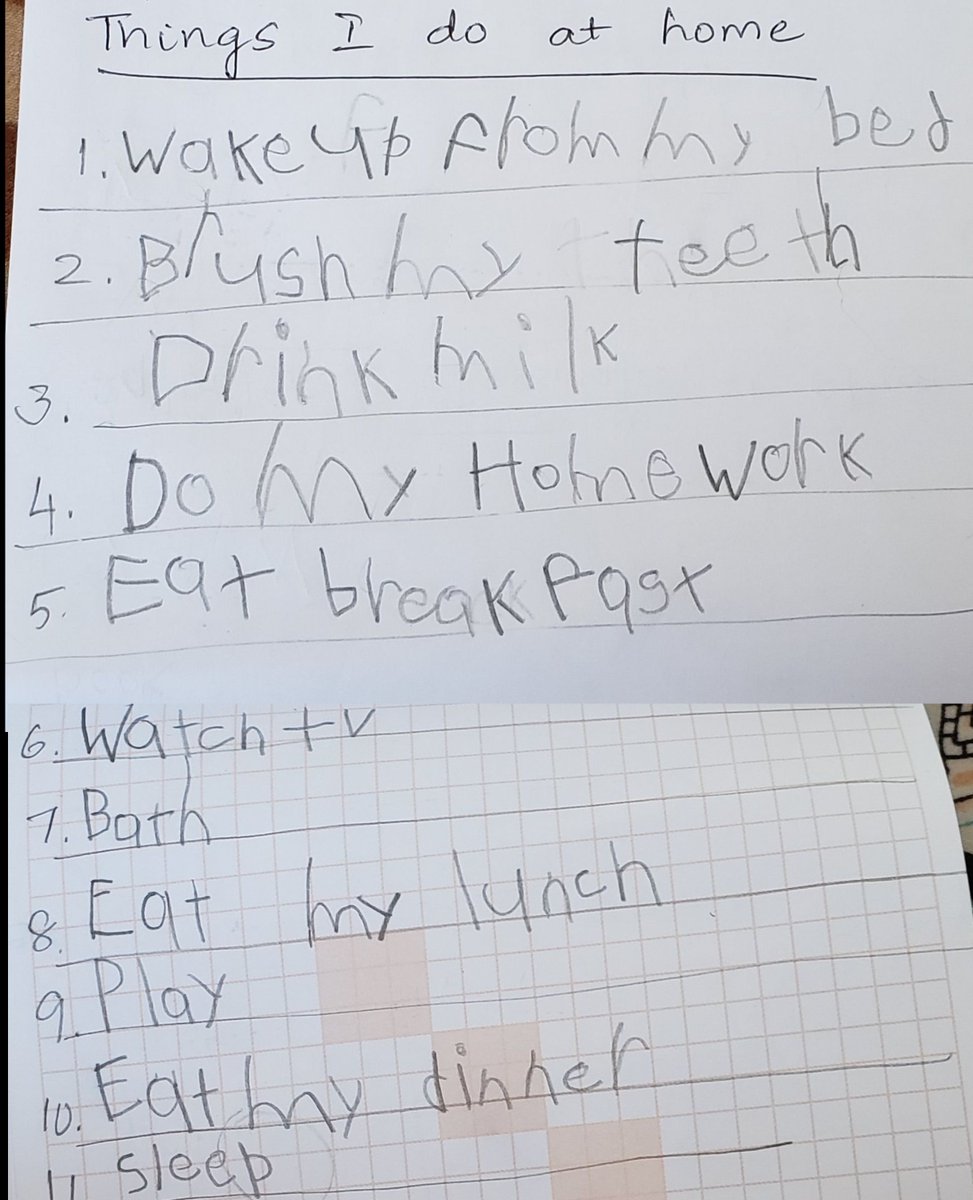 Things I do at home
1. Wake up from my bed
2. Brush my teeth
3. Drink milk
4. Do my Home work
5. Eat break fast
6. Watch tv
7. Bath
8. Eat my lunch
9. Play
10. Eat my dinner
11 sleep